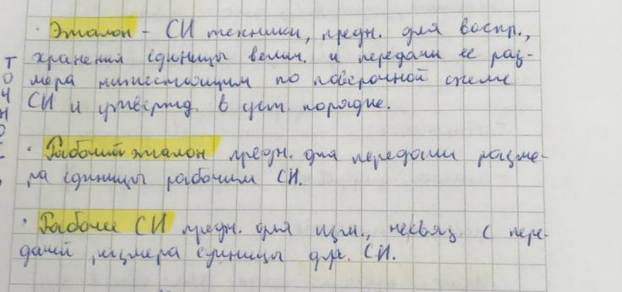 · Эталон - СИ техники, предн. для воспр.,
хранения единицы велич. и передачи ее раз-
мера нижестоящим по поверочной схеме
СИ и утвержд. в уст. порядке.
· Рабочий эталон предн. для передачи разме-
ра единицы рабочим СИ.
· Рабочие СИ предн. для изм., несвяз. с пере-
дачей размера единицы др. СИ.
Т
О
Ч
Н
О